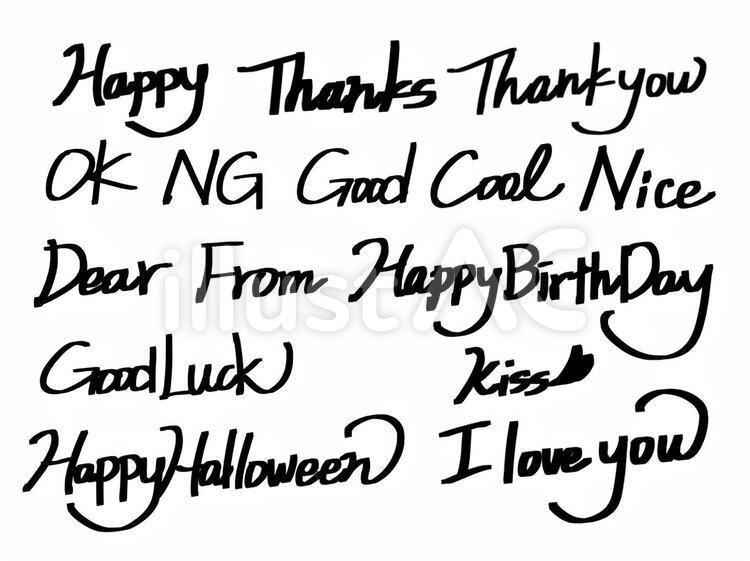 Happy Thanks Thank you
OK NG Good Cool Nice
Dear From Happy BirthDay
illustAC
Good Luck Kiss
Happy Halloween I love you